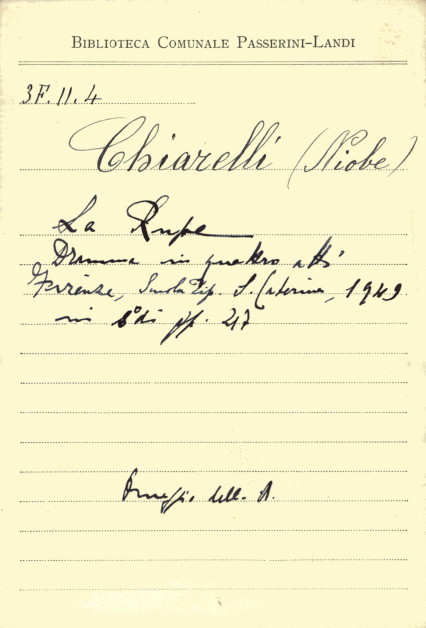 BIBLIOTECA COMUNALE PASSERINI-LANDI
3F.II.4
Chiarelli (Niobe)
La Rupe
Dramma in quattro atti
Firenze, Scuola Tip. S. Caterina, 1949
in 8° di pp. 217
Omaggio dell. A.